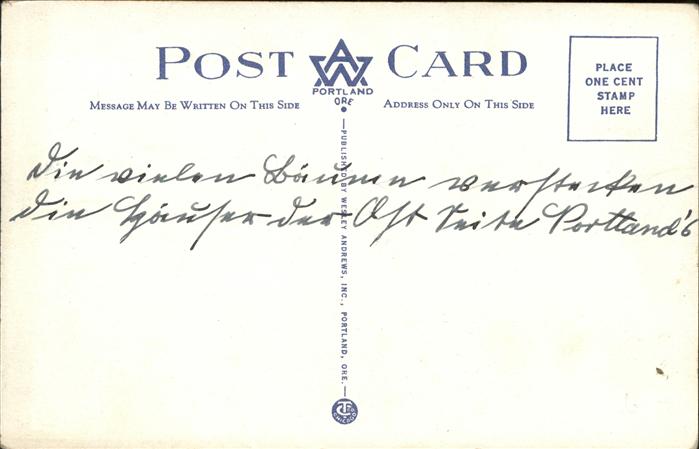 POST CARD
AW
PORTLAND
ORE
MESSAGE MAY BE WRITTEN ON THIS SIDE
ADDRESS ONLY ON THIS SIDE
PLACE
ONE CENT
STAMP
HERE
Die vielen Bäumen verstecken
die Häuser der Ost Seite Portland's
—PUBLISHED BY WESLEY ANDREWS, INC., PORTLAND, ORE.—